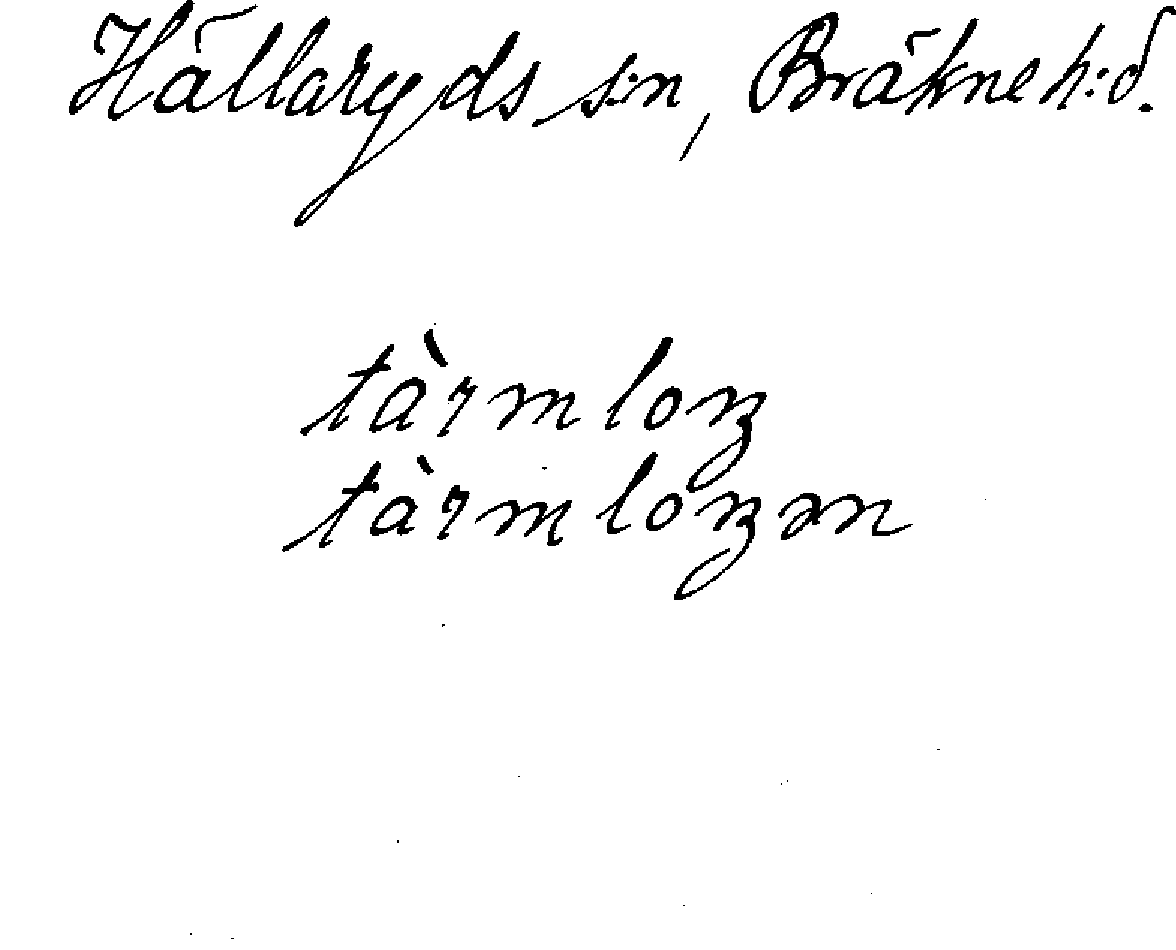 Hällaryds s:n, Bräkne h:d.
tàrmloŋ
tàrmloŋən